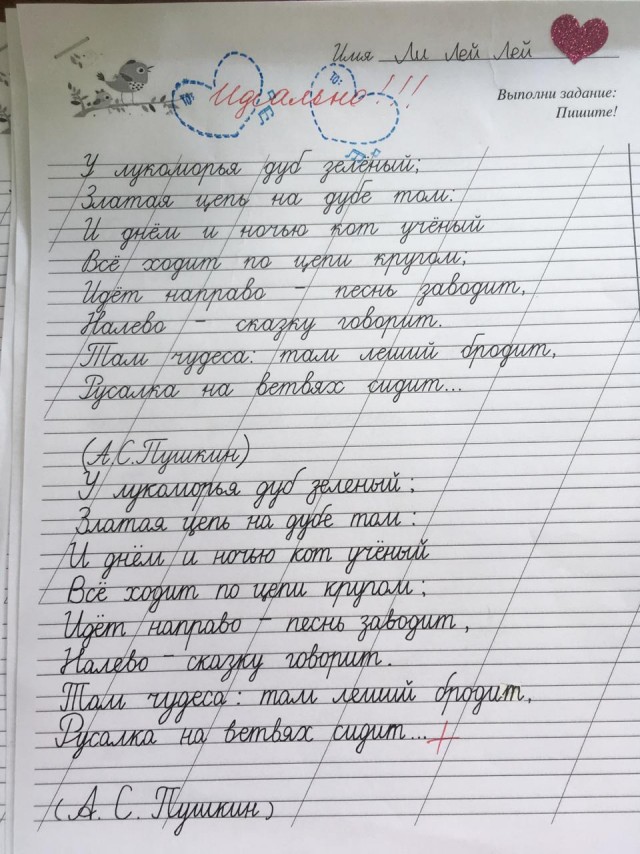 Имя Ли Лей Лей
Идеально!!!
Выполни задание:
Пишите!
У лукоморья дуб зелёный;
Златая цепь на дубе том:
И днём и ночью кот учёный
Всё ходит по цепи кругом;
Идёт направо - песнь заводит,
Налево - сказку говорит.
Там чудеса: там леший бродит,
Русалка на ветвях сидит...
(А.С.Пушкин)
У лукоморья дуб зеленый;
Златая цепь на дубе том:
И днём и ночью кот учёный
Всё ходит по цепи кругом;
Идёт направо - песнь заводит,
Налево - сказку говорит.
Там чудеса: там леший бродит,
Русалка на ветвях сидит...
(А. С. Пушкин)